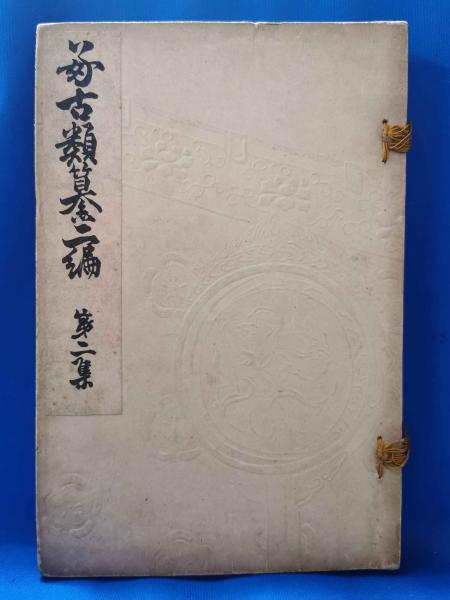 好古類纂二編
第二集